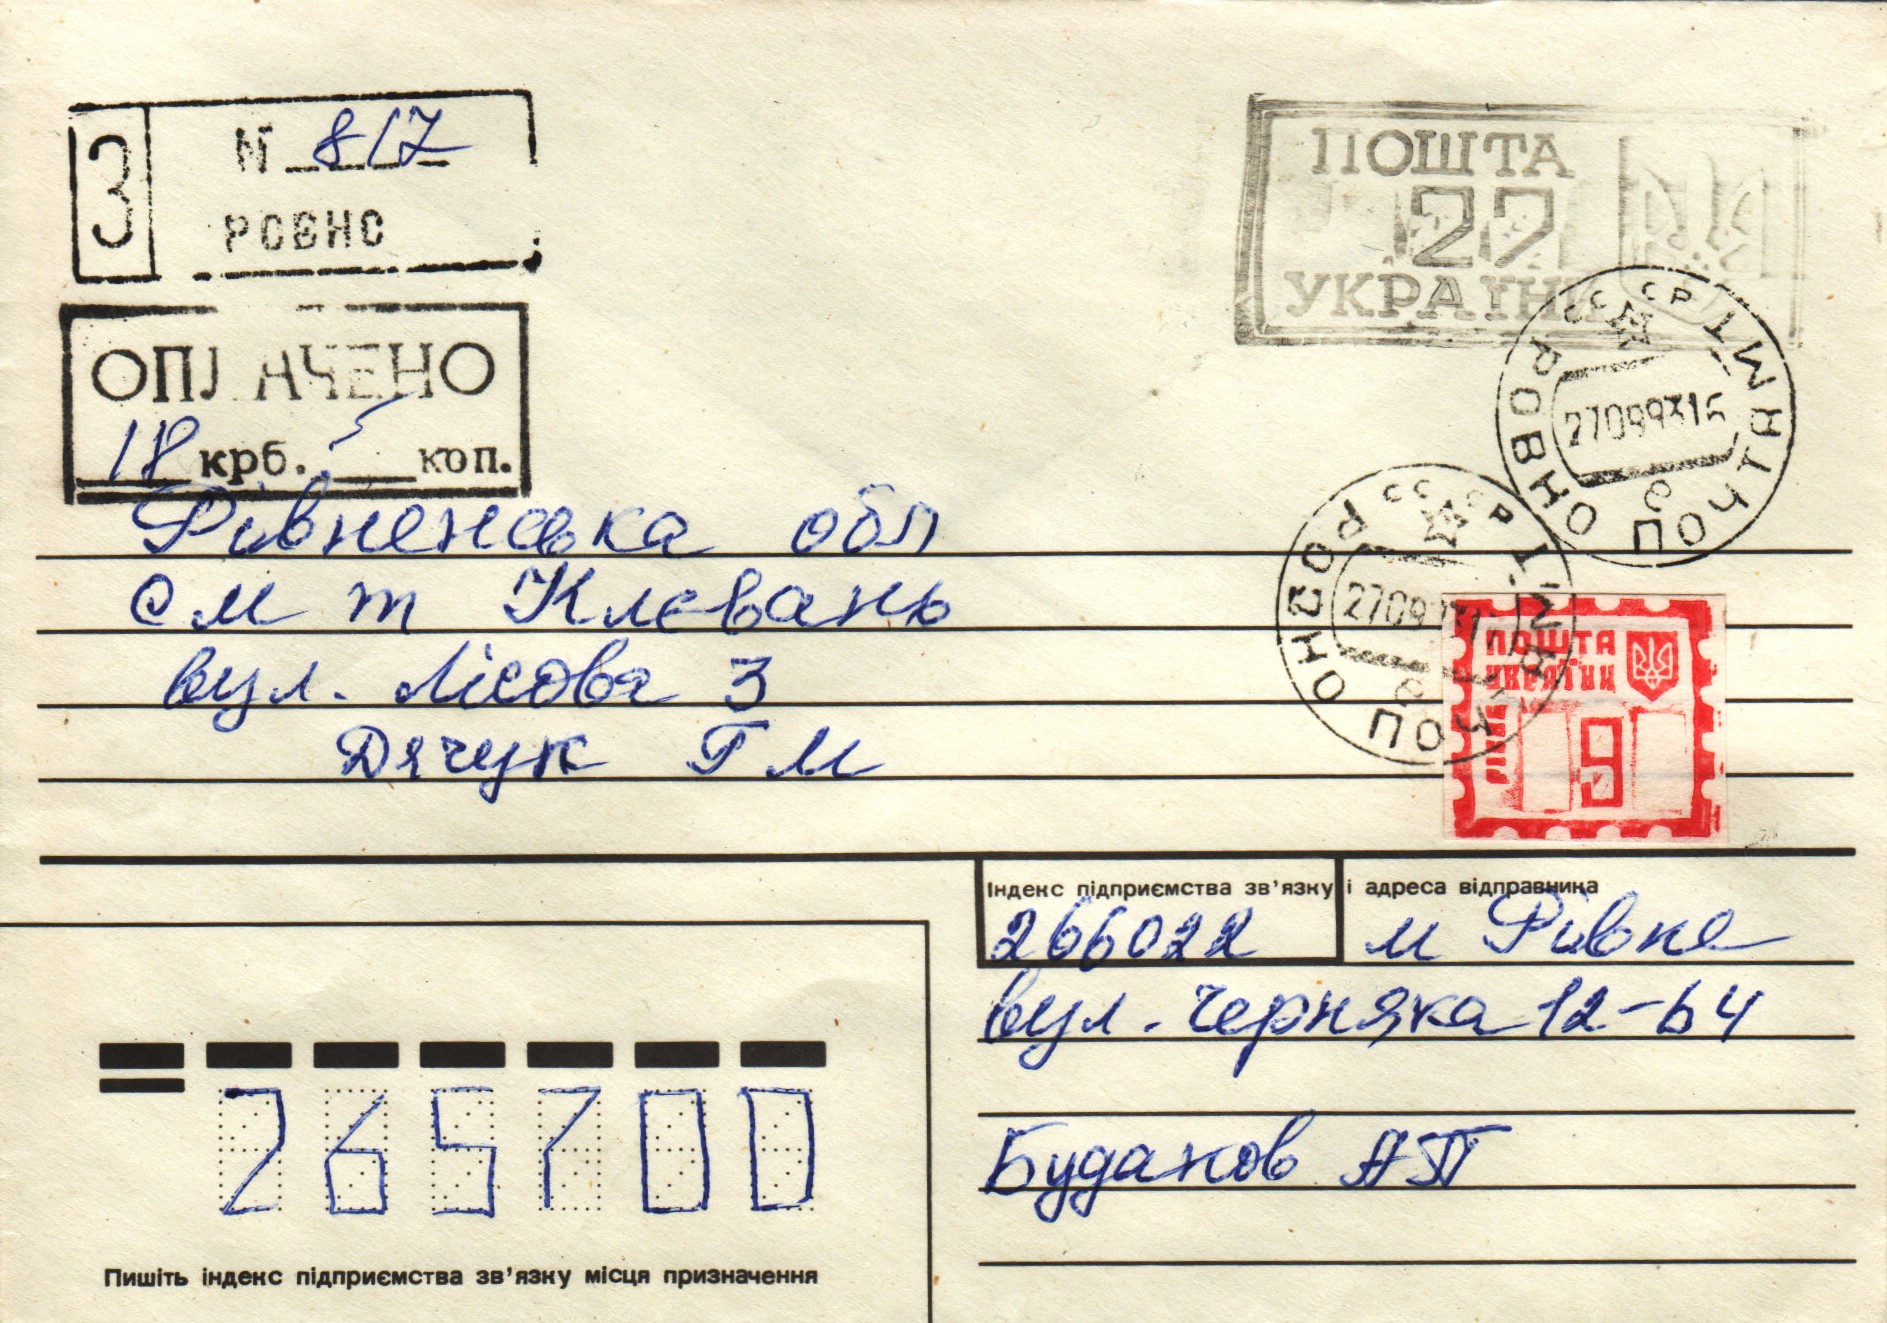 З
N 817
РОВНО
ОПЛАЧЕНО
18 крб. 5 коп.
ПОШТА
22
УКРАЇНИ
СССР РОВНО ПОЧТАМТ
270993 1
СССР РОВНО ПОЧТАМТ
270993 1
ПОШТА
УКРАЇНИ
9
Рівненська обл
смт Клевань
вул. Лісова 3
Дячук Г М
Індекс підприємства зв'язку і адреса відправника
266022 м Рівне
вул. Черняка 12-64
Буданов АП
265700
Пишіть індекс підприємства зв'язку місця призначення